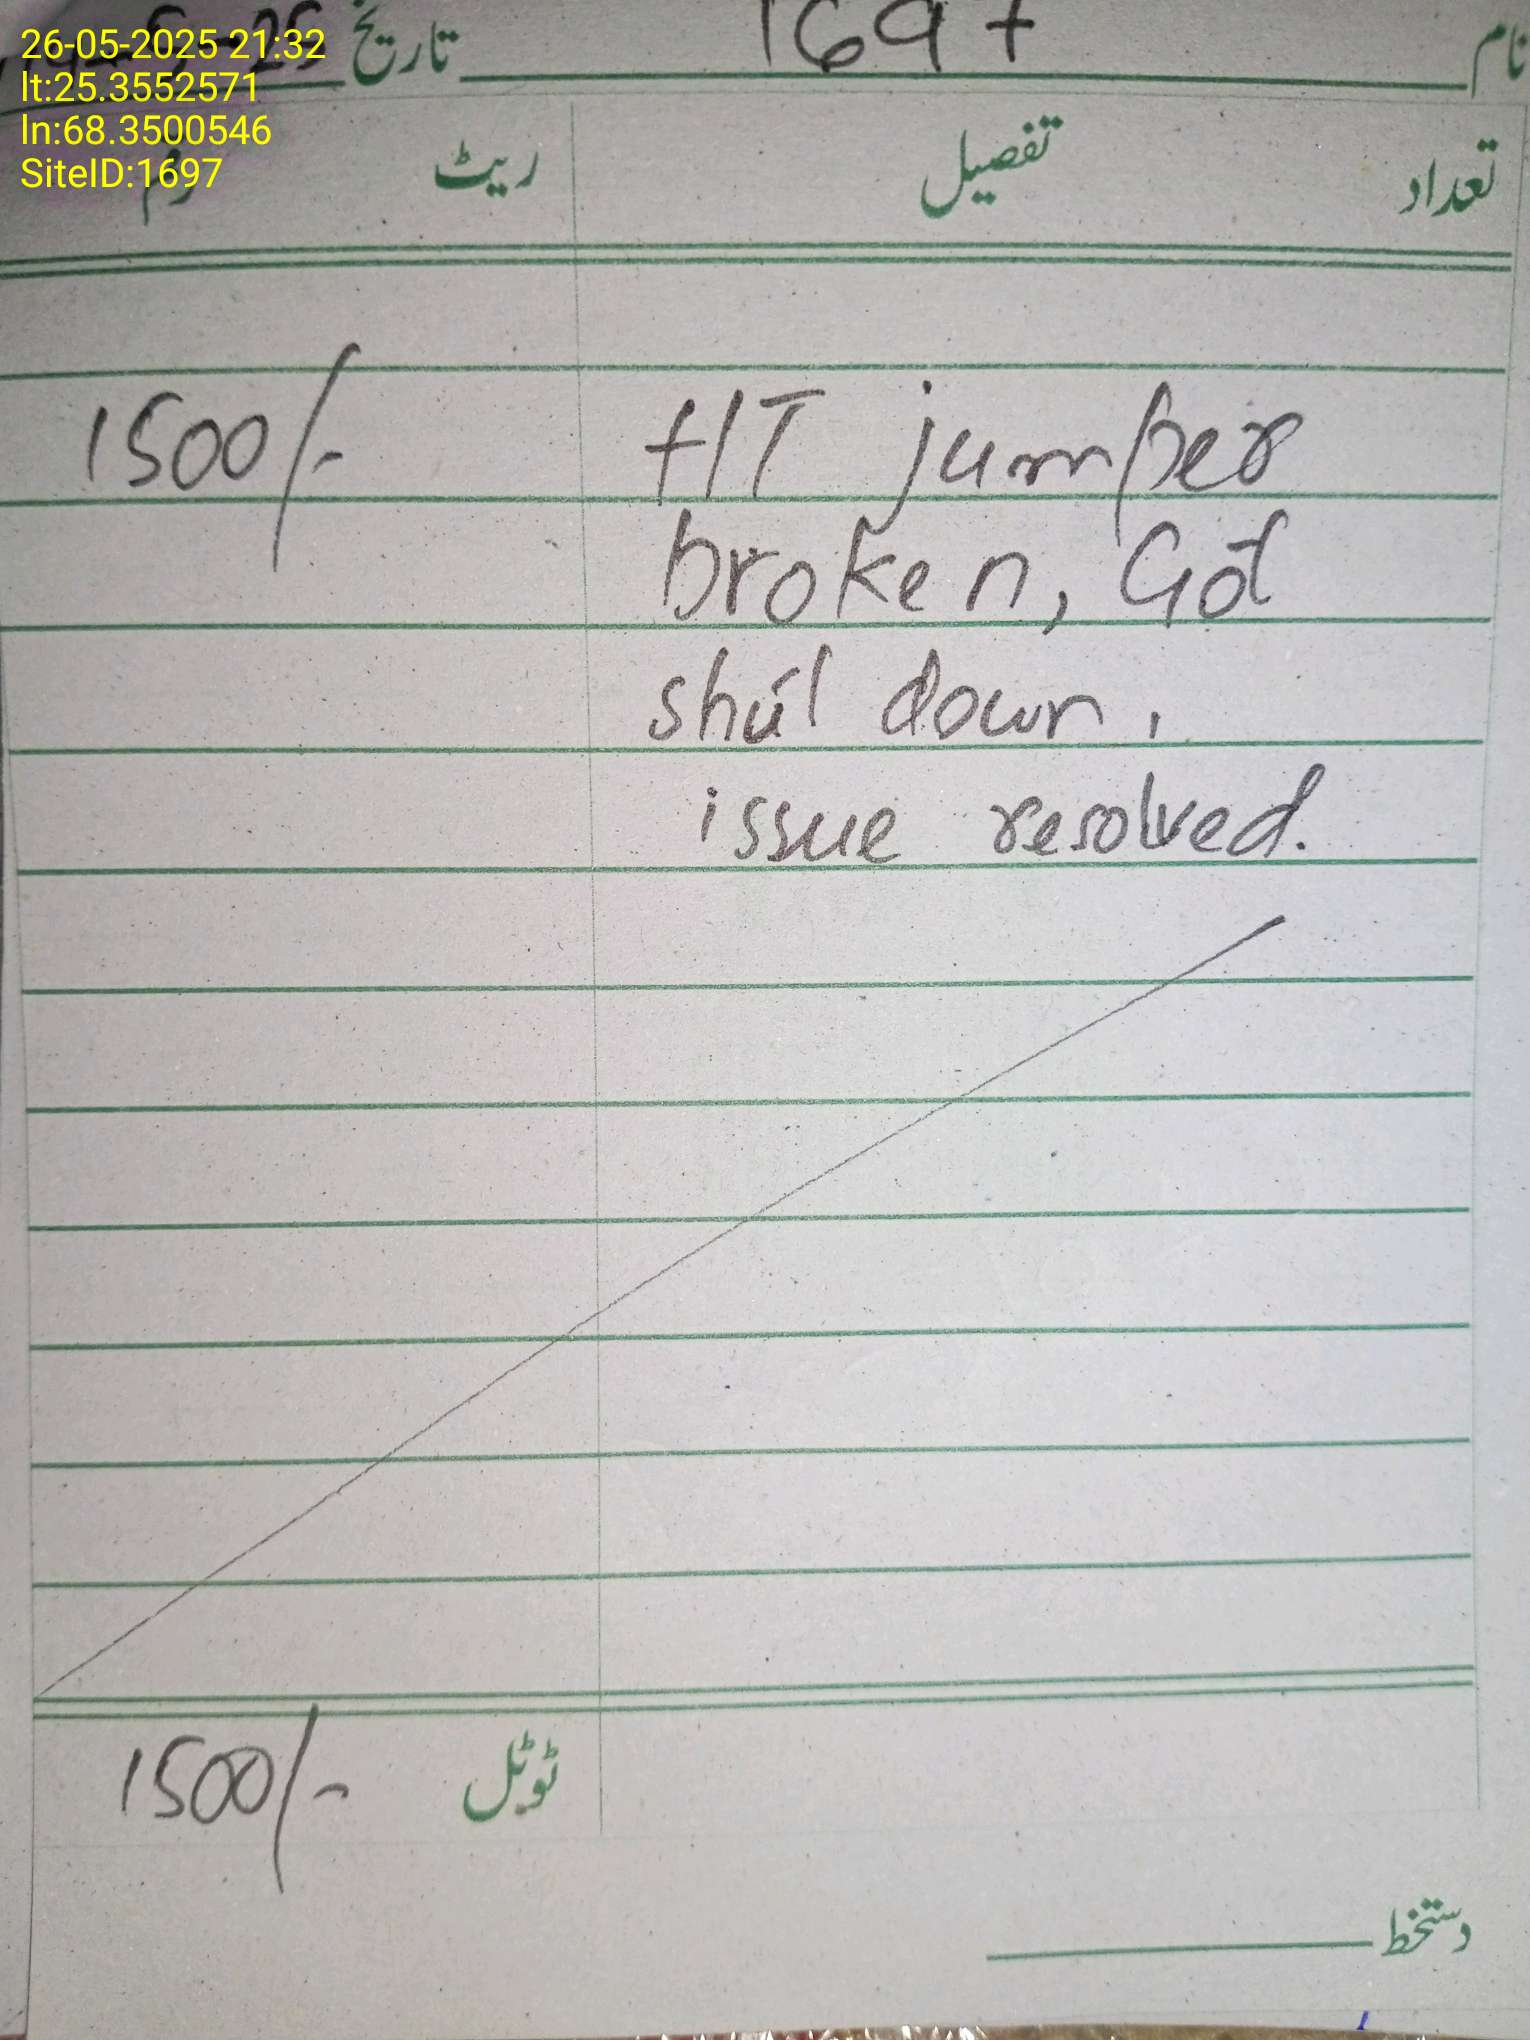 26-05-2025 21:32
lt:25.3552571
ln:68.3500546
SiteID:1697
نام 1697 تاریخ
تعداد تفصیل ریٹ رقم
HT jumper 1500/-
broken, Got
shut down.
issue resolved.
ٹوٹل 1500/-
دستخط